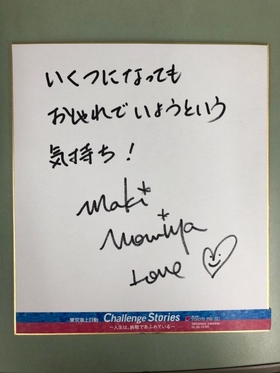 いくつになっても
おしゃれでいようという
気持ち！
Maki*
Moriya
Love
東京海上日動 Challenge Stories
～人生は、挑戦であふれている～